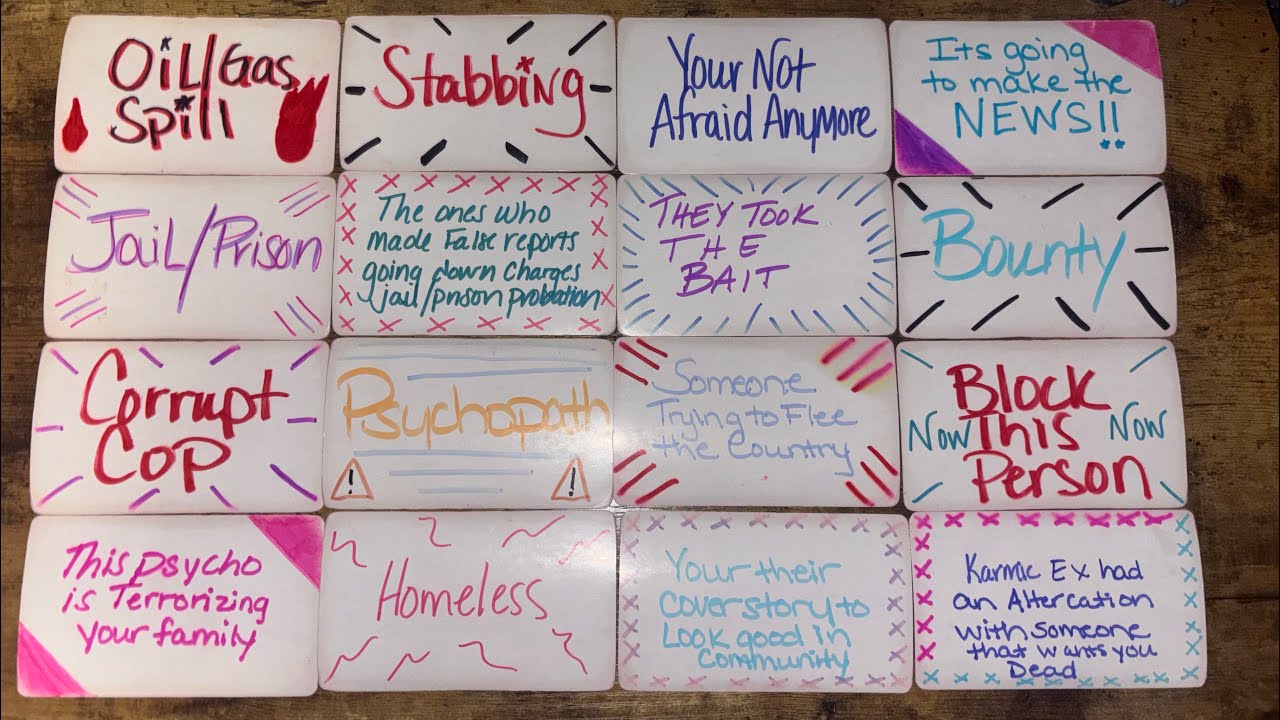 OiL/Gas
Spill
Stabbing
Your Not
Afraid Anymore
Its going
to make the
NEWS!!
JaiL/Prison
The ones who
made False reports
going down charges
jail/prison probation
THEY TOOK
THE
BAIT
Bounty
Corrupt
Cop
Psychopath
!
!
Someone
Trying to Flee
the Country
Block
Now This Now
Person
This psycho
is Terrorizing
your family
Homeless
Your their
coverstory to
Look good in
Community
Karmic Ex had
an Altercation
with someone
that wants you
Dead